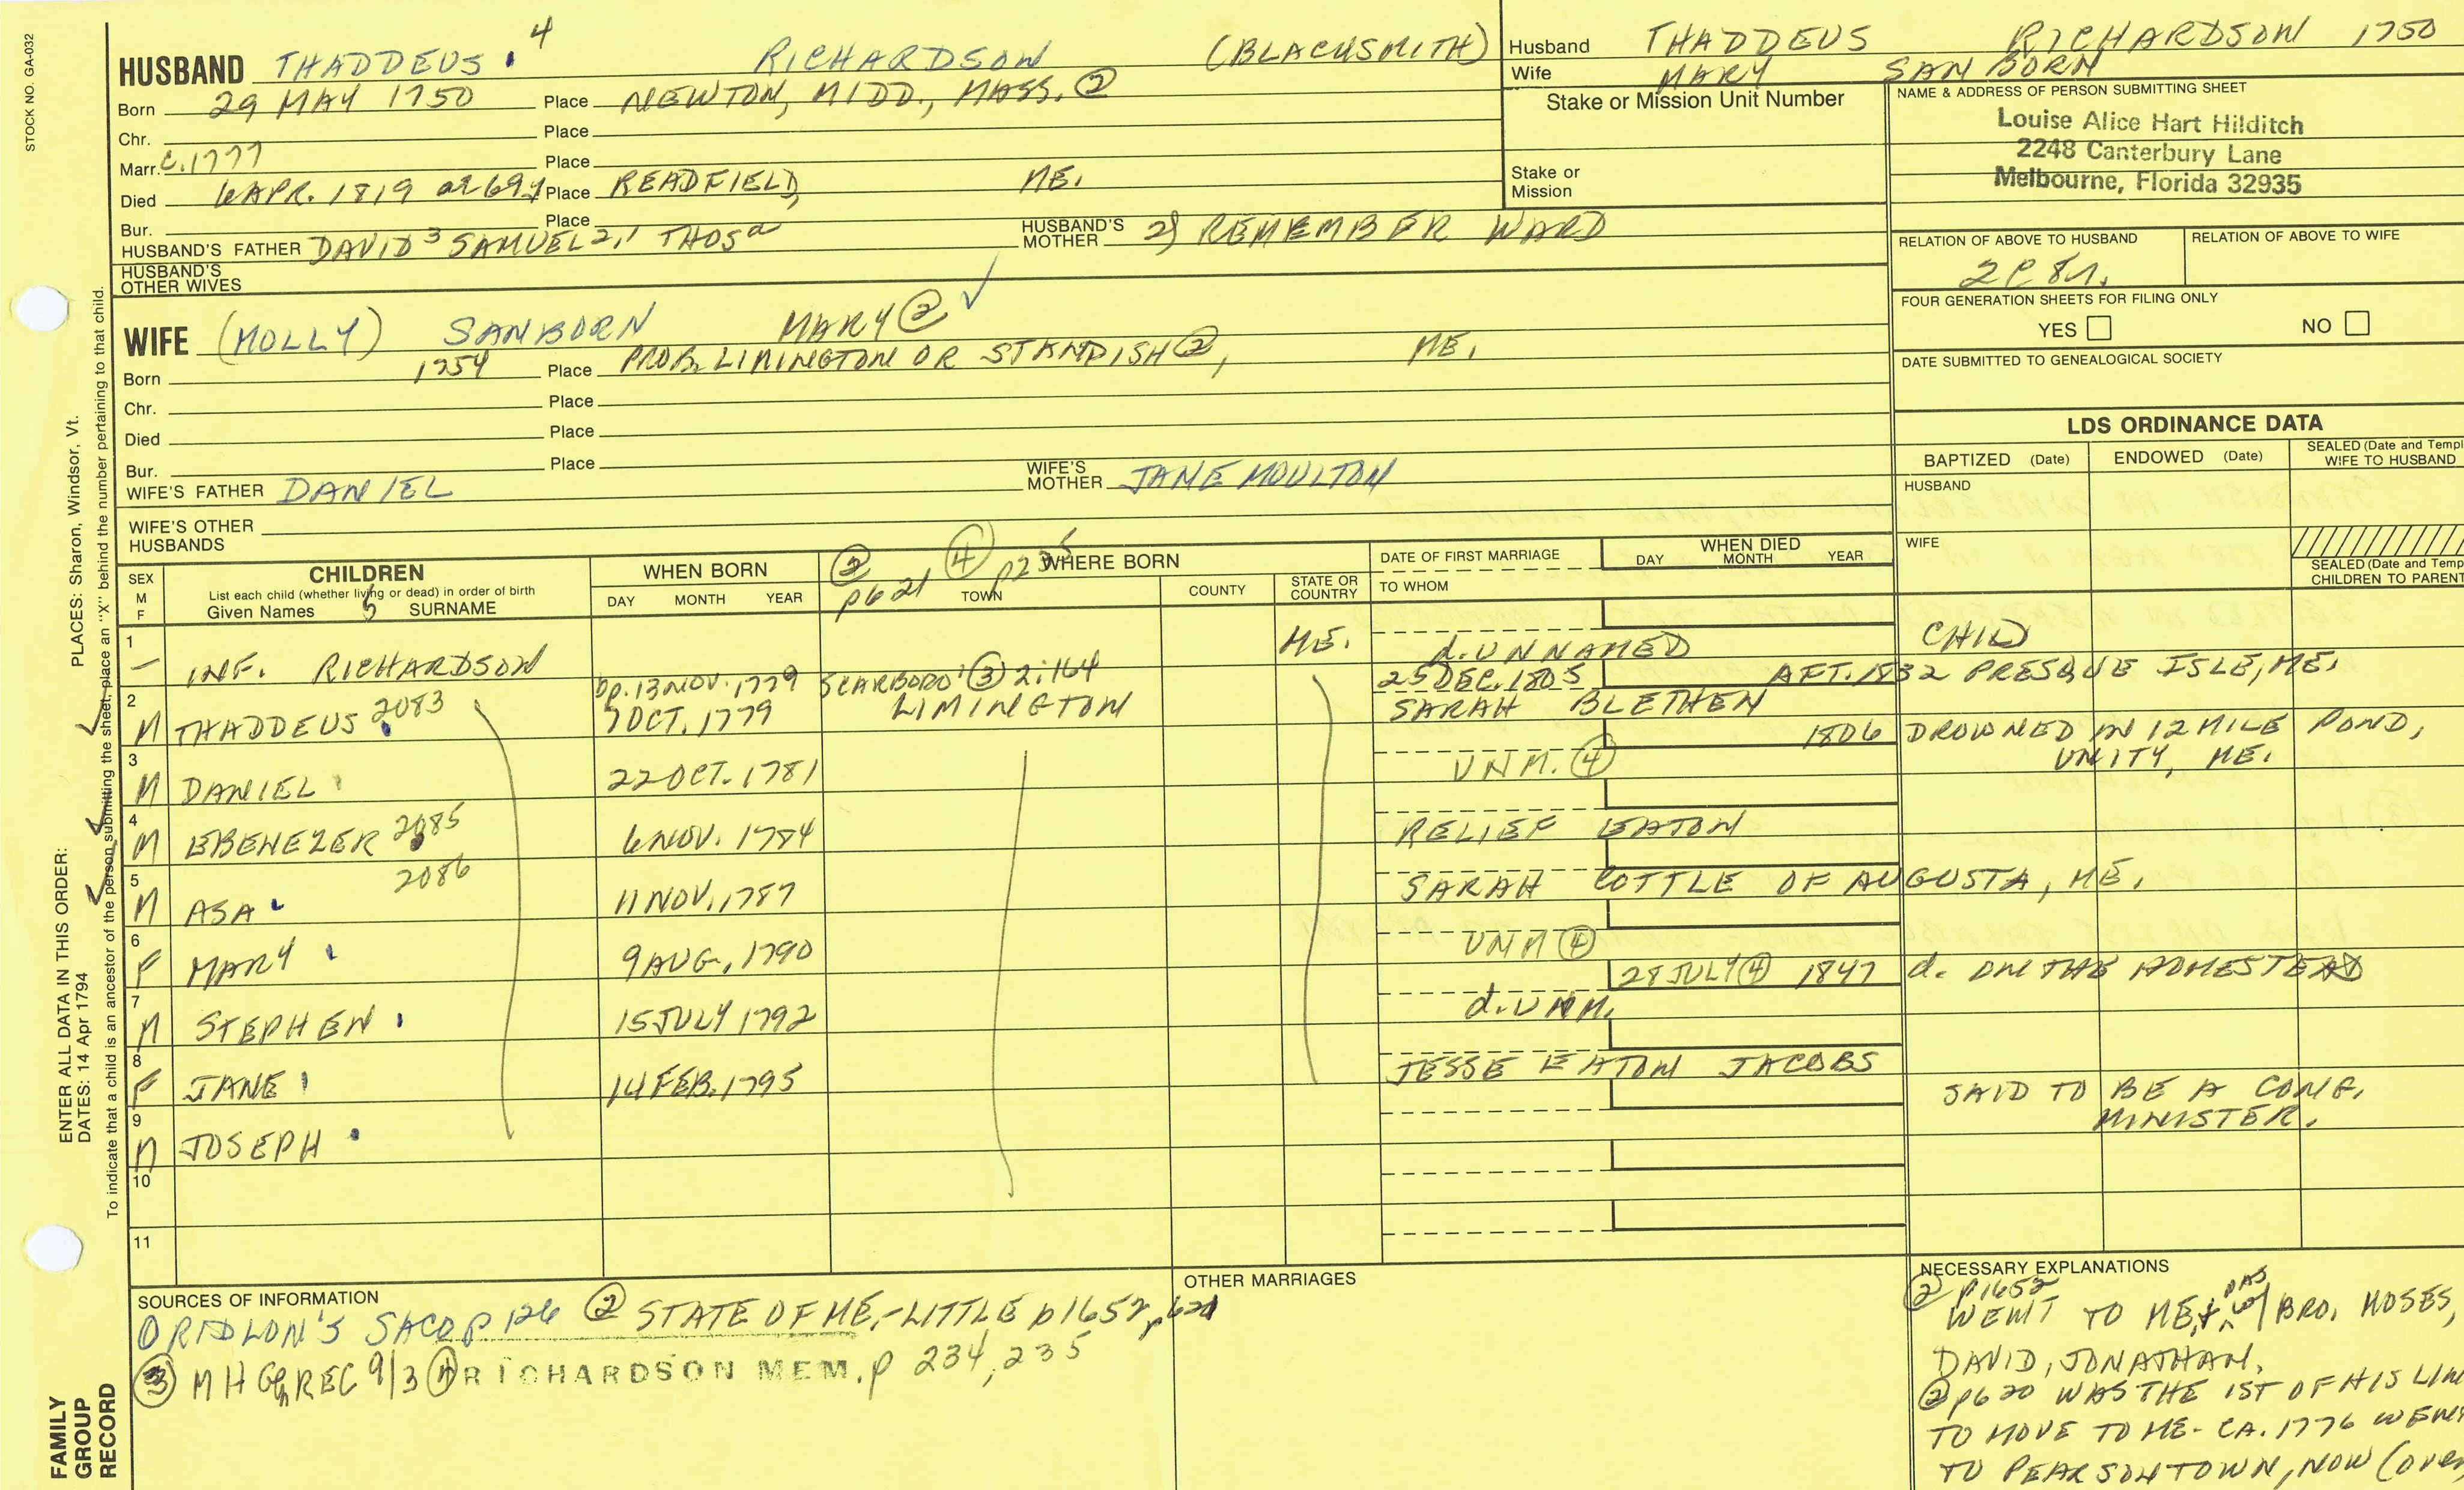 STOCK NO. GA-032
HUSBAND THADDEUS 4 RICHARDSON (BLACKSMITH)
Born 29 MAY 1750 Place NEWTON, MIDD., MASS. ②
Chr. Place
Marr. C. 1777 Place
Died 6 APR. 1819 at 69y Place READFIELD, ME.
Bur. Place
HUSBAND'S FATHER DAVID 3 SAMUEL 2,1 THOS a HUSBAND'S MOTHER 2) REMEMBER WARD
HUSBAND'S OTHER WIVES
WIFE (MOLLY) SANBORN MARY ② ✓
Born 1754 Place PROB. LIMINGTON OR STANDISH ②, ME.
Chr. Place
Died Place
Bur. Place
WIFE'S FATHER DANIEL WIFE'S MOTHER JANE MOULTON
WIFE'S OTHER HUSBANDS
Husband THADDEUS RICHARDSON 1750
Wife MARY SANBORN
Stake or Mission Unit Number
Stake or Mission
NAME & ADDRESS OF PERSON SUBMITTING SHEET
Louise Alice Hart Hilditch
2248 Canterbury Lane
Melbourne, Florida 32935
RELATION OF ABOVE TO HUSBAND RELATION OF ABOVE TO WIFE
FOUR GENERATION SHEETS FOR FILING ONLY
YES NO
DATE SUBMITTED TO GENEALOGICAL SOCIETY
LDS ORDINANCE DATA
BAPTIZED (Date) ENDOWED (Date) SEALED (Date and Templ
WIFE TO HUSBAND
HUSBAND
WIFE
SEALED (Date and Temp
CHILDREN TO PARENT
SEX M F CHILDREN WHEN BORN ② p621 ④ p235 WHERE BORN DATE OF FIRST MARRIAGE WHEN DIED
List each child (whether living or dead) in order of birth
Given Names 5 SURNAME DAY MONTH YEAR TOWN COUNTY STATE OR COUNTRY TO WHOM DAY MONTH YEAR
1 — INF. RICHARDSON ME. d. UNNAMED CHILD
2 M THADDEUS 2083 bp. 13 NOV. 1779 SCARBORO' ③ 2:164 25 DEC. 1805 AFT. 1832 PRESQUE ISLE, ME.
7 OCT. 1779 LIMINGTON SARAH BLETHEN
3 M DANIEL 22 OCT. 1781 UNM. ④ 1806 DROWNED IN 12 MILE POND,
UNITY, ME.
4 M EBENEZER 2085 6 NOV. 1784 RELIEF EATON
5 M ASA 2086 11 NOV. 1787 SARAH COTTLE OF AUGUSTA, ME.
6 F MARY 9 AUG, 1790 UNM ④
7 M STEPHEN 15 JULY 1792 d. UNM. 28 JULY ④ 1847 d. ON THE HOMESTEAD
8 F JANE 14 FEB. 1795 JESSE EATON JACOBS
9 M JOSEPH SAID TO BE A CONG.
MINISTER.
10
11
SOURCES OF INFORMATION
RIDLON'S SACO p 126 ② STATE OF ME. - LITTLE p1652, p621
③ M H G REC 9/3 ④ RICHARDSON MEM. p 234, 235
OTHER MARRIAGES
NECESSARY EXPLANATIONS
② p1652
WENT TO ME, BRO. MOSES,
DAVID, JONATHAN.
② p620 WAS THE 1ST OF HIS LIN
TO MOVE TO ME - CA. 1776 WEN
TO PEARSONTOWN, NOW (over
PLACES: Sharon, Windsor, Vt.
ENTER ALL DATA IN THIS ORDER:
DATES: 14 Apr 1794
To indicate that a child is an ancestor of the person submitting the sheet, place an "X" behind the number pertaining to that child.
FAMILY
GROUP
RECORD